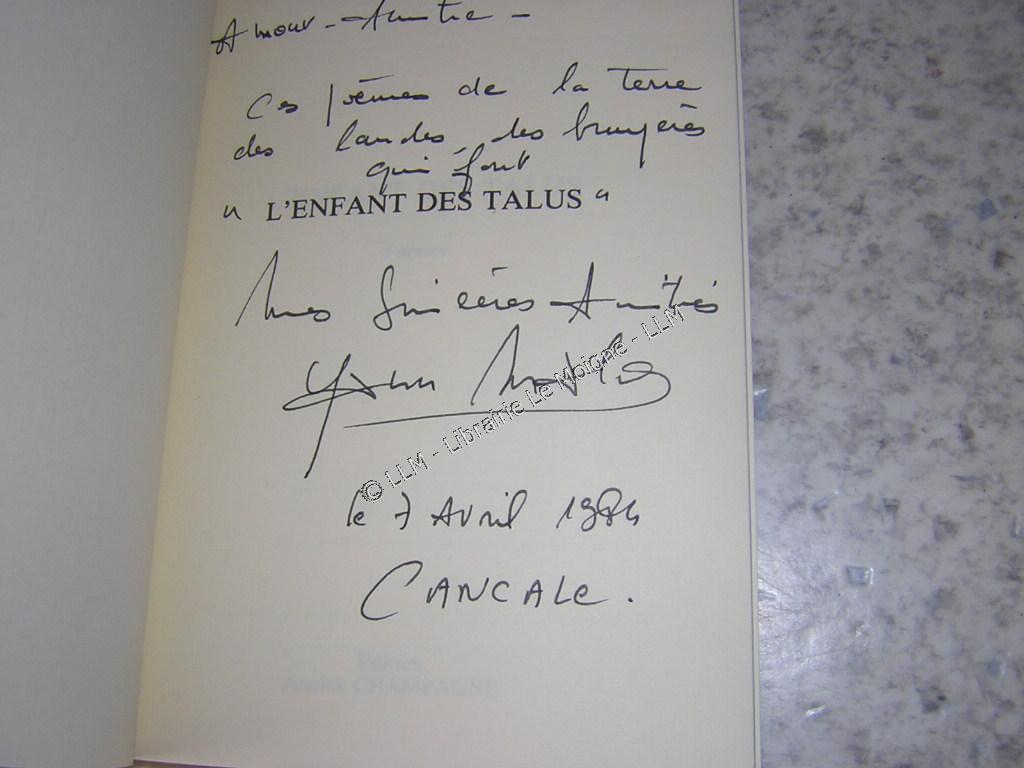 Amour - Amitié -
Ces poèmes de la Terre
des landes, des bruyères
qui font
" L'ENFANT DES TALUS "
Mes Sincères Amitiés
Yann
© LLM - Librairie Le Moigne - LLM
le 7 Avril 1984
CANCALE.
Editions
Annick CHAMPAGNE